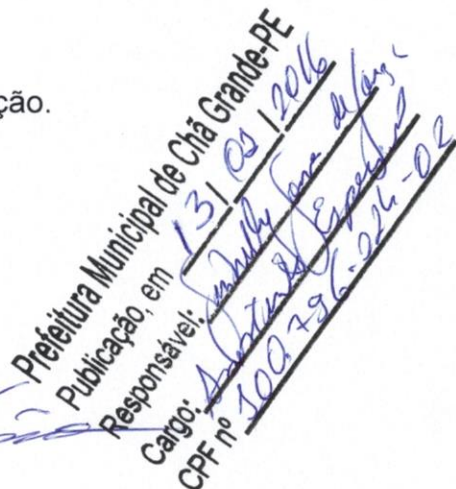 ção.
Prefeitura Municipal de Chã Grande-PE
Publicação, em 13 / 09 / 2016
Responsável:
Cargo: Assistente Especial
CPF nº 100.796.224-02